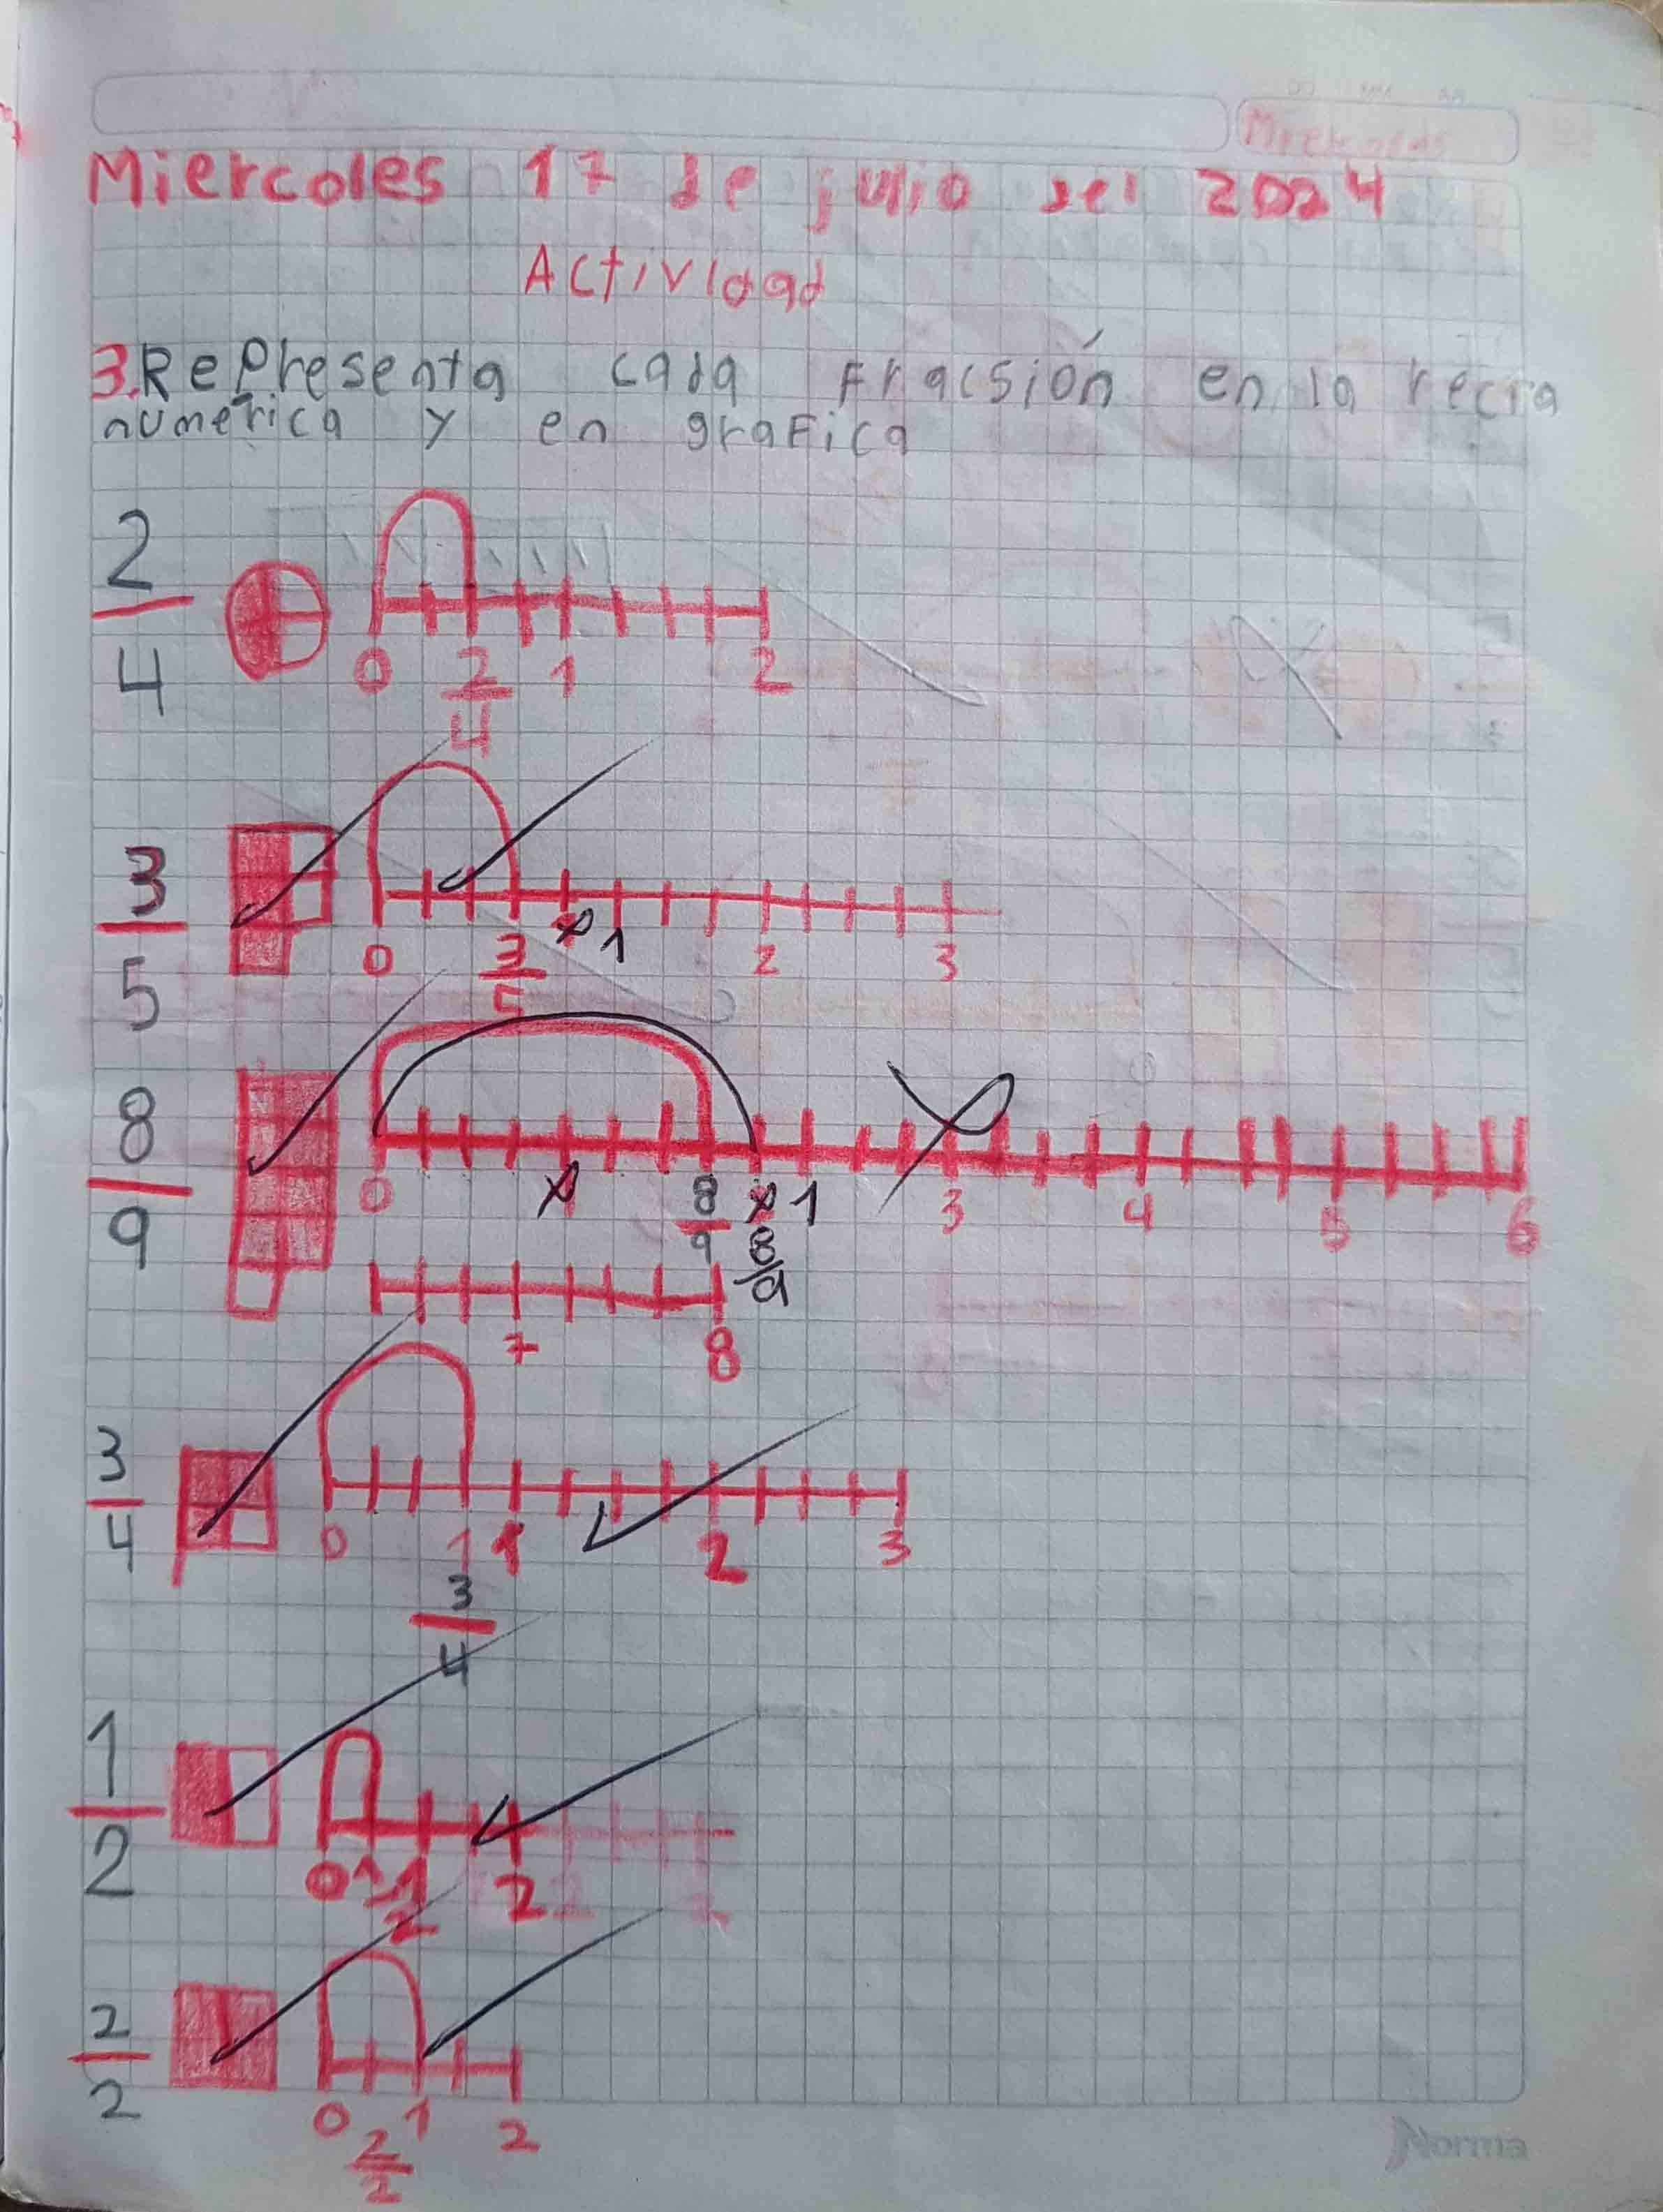 Miercoles 17 de julio del 2024
Actividad
3. Representa cada Fracsión en la recta
numérica y en graFica
2
4
0 2/4 1 2
3
5
0 3/5 1 2 3
8
9
0 8/9 1 3 4 5 6
8/9
7 8
3
4
0 1 1 2 3
3
4
1
2
0 1/2 1 2
2
2
0 2/2 1 2
Norma